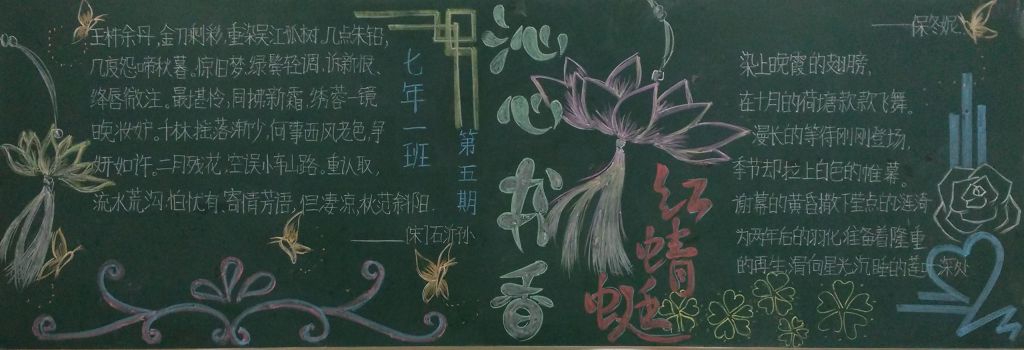 玉杵余丹,金刀剩彩,重染吴江孤树,几点朱铅,
几度怨啼秋暮。惊旧梦,绿鬓轻凋,诉新恨、
绛唇微注。最堪怜,同拂新霜,绣蓉一镜
晚妆妒。千林摇落渐少,何事西风老色,争
妍如许。二月残花,空误小车山路。重认取,
流水荒沟,怕犹有、寄情芳语。但凄凉,秋苑斜阳.
——[宋]石沂孙
七年一班
第五期
沁心书香
红蜻蜓
——保冬妮
染上晚霞的翅膀,
在十月的荷塘款款飞舞。
漫长的等待刚刚登场,
季节却拉上白色的帷幕。
谢幕的黄昏撒下星点的涟漪
为两年后的羽化准备着隆重
的再生,滑向星光沉睡的莲叶深处